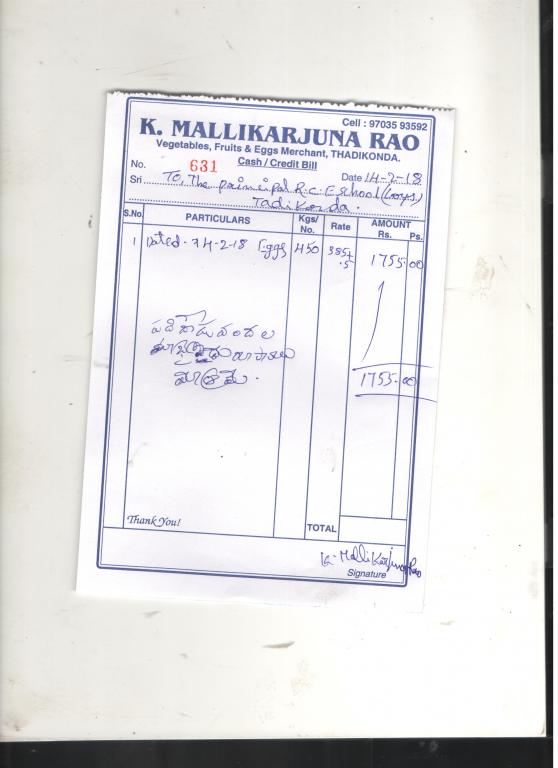 Cell : 97035 93592
K. MALLIKARJUNA RAO
Vegetables, Fruits & Eggs Merchant, THADIKONDA.
Cash / Credit Bill
No. 631
Date 14-2-18
Sri To, The principal R.C.E school (Boys)
Tadikonda.
S.No. PARTICULARS Kgs/ No. Rate AMOUNT Rs. Ps.
1 Dated - 14-2-18 Eggs 450 1755.00
మాత్రమే.
1755-00
Thank You!
TOTAL
K. Mallikarjuna Rao
Signature